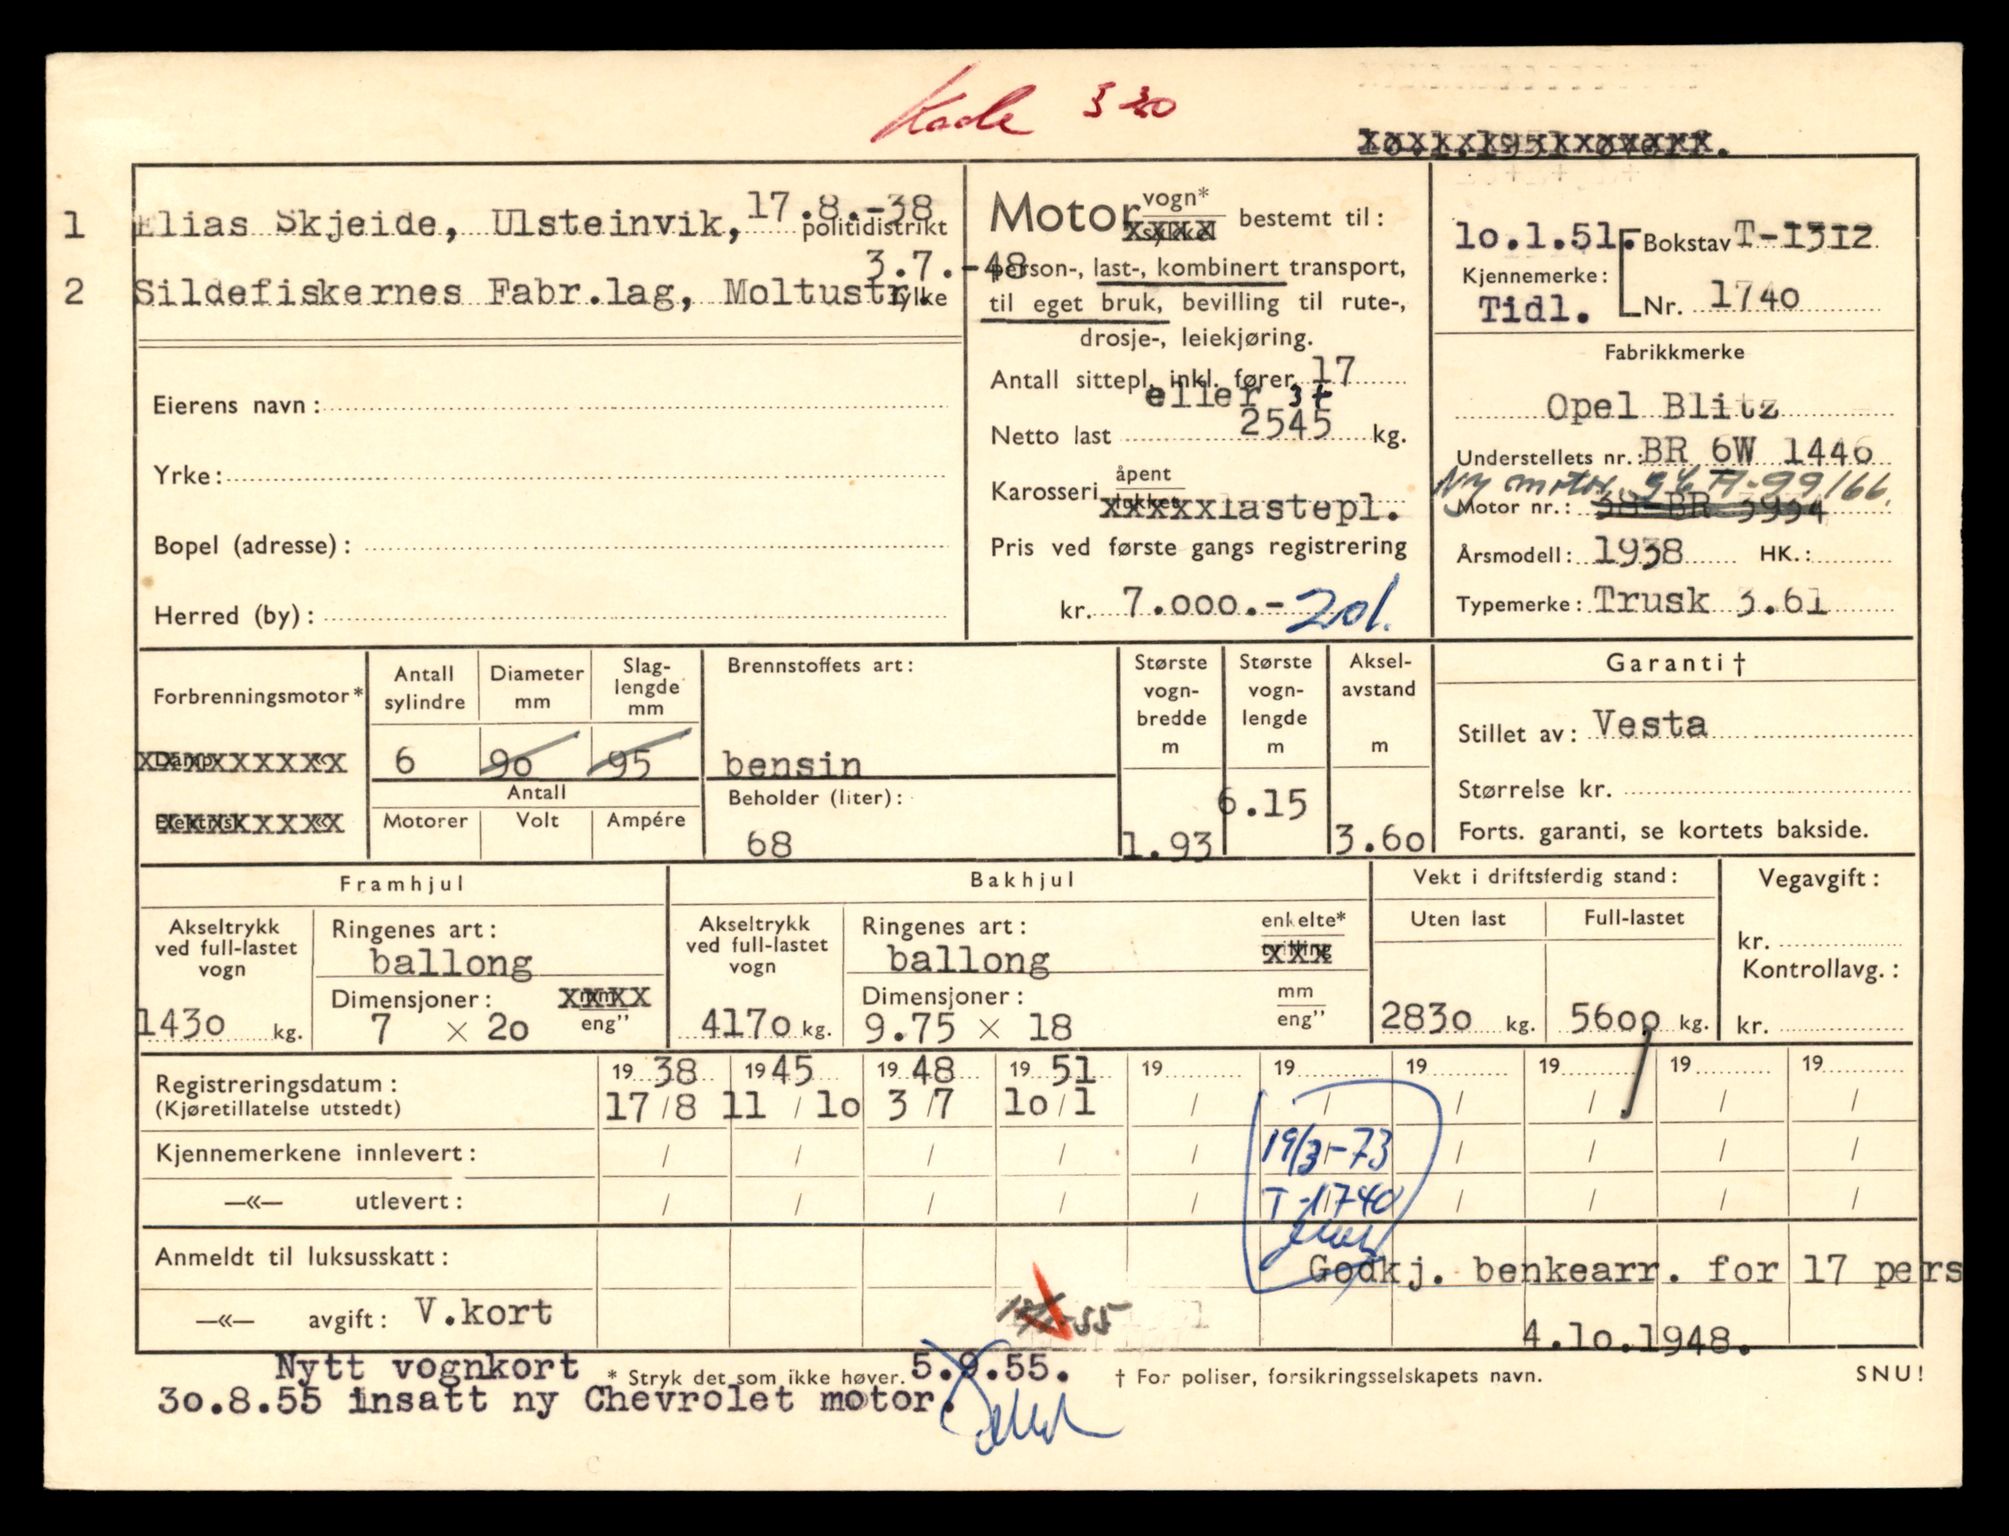 Kode § 30
1 Elias Skjeide, Ulsteinvik, 17.8.-38 politidistrikt
2 Sildefiskernes Fabr.lag, Moltustr. 3.7.-48 fylke
Eierens navn:
Yrke:
Bopel (adresse):
Herred (by):
Motor vogn* bestemt til:
person-, last-, kombinert transport,
til eget bruk, bevilling til rute-,
drosje-, leiekjøring.
Antall sittepl. inkl. fører 17
eller 3t
Netto last 2545 kg.
Karosseri åpent lastepl.
Pris ved første gangs registrering
kr. 7.000.- 201.
lo.1.51. Bokstav T-1312
Kjennemerke:
Tidl. Nr. 1740
Fabrikkmerke
Opel Blitz
Understellets nr.: BR 6W 1446
Ny motor
Motor nr.: 38-BR 3934
Årsmodell: 1938 HK.:
Typemerke: Trusk 3.61
Forbrenningsmotor*
Damp «
Elektrisk «
Antall sylindre
6
Diameter mm
90
Slag-lengde mm
95
Antall
Motorer Volt Ampére
Brennstoffets art:
bensin
Beholder (liter):
68
Største vogn-bredde m
1.93
Største vogn-lengde m
6.15
Aksel-avstand m
3.60
Garanti †
Stillet av: Vesta
Størrelse kr.
Forts. garanti, se kortets bakside.
Framhjul
Akseltrykk ved full-lastet vogn
1430 kg.
Ringenes art:
ballong
Dimensjoner: mm
7 × 20 eng"
Bakhjul
Akseltrykk ved full-lastet vogn
4170 kg.
Ringenes art: enkelte*
ballong tvilling
Dimensjoner: mm
9.75 × 18 eng"
Vekt i driftsferdig stand:
Uten last Full-lastet
2830 kg. 5600 kg.
Vegavgift:
kr.
Kontrollavg.:
kr.
Registreringsdatum: 19 38 19 45 19 48 19 51 19 19 19 19 19 19
(Kjøretillatelse utstedt) 17/8 11/10 3/7 10/1 / / / / / /
Kjennemerkene innlevert: / / / / / 19/3-73 / / / /
—«— utlevert: / / / / / T-1740 / / / /
Anmeldt til luksusskatt: Godkj. benkearr. for 17 pers
—«— avgift: V.kort 4.10.1948.
Nytt vognkort * Stryk det som ikke høver. 5.9.55. † For poliser, forsikringsselskapets navn. SNU!
30.8.55 insatt ny Chevrolet motor.